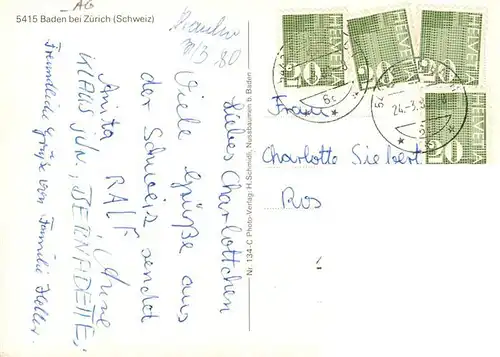 AG
5415 Baden bei Zürich (Schweiz)
80
Liebes Charlottchen
Viele Grüße aus
der Schweiz sendet
Anita RALF
KLAUS jün, BERNADETTE,
Freundliche Grüße von Familie Keller.
Nr. 134-C Photo-Verlag: H. Schmidli, Nussbaumen b. Baden
HELVETIA
20
HELVETIA
20
HELVETIA
20
HELVETIA
20
24.-3.8
Frau
Charlotte Siebert
Ros